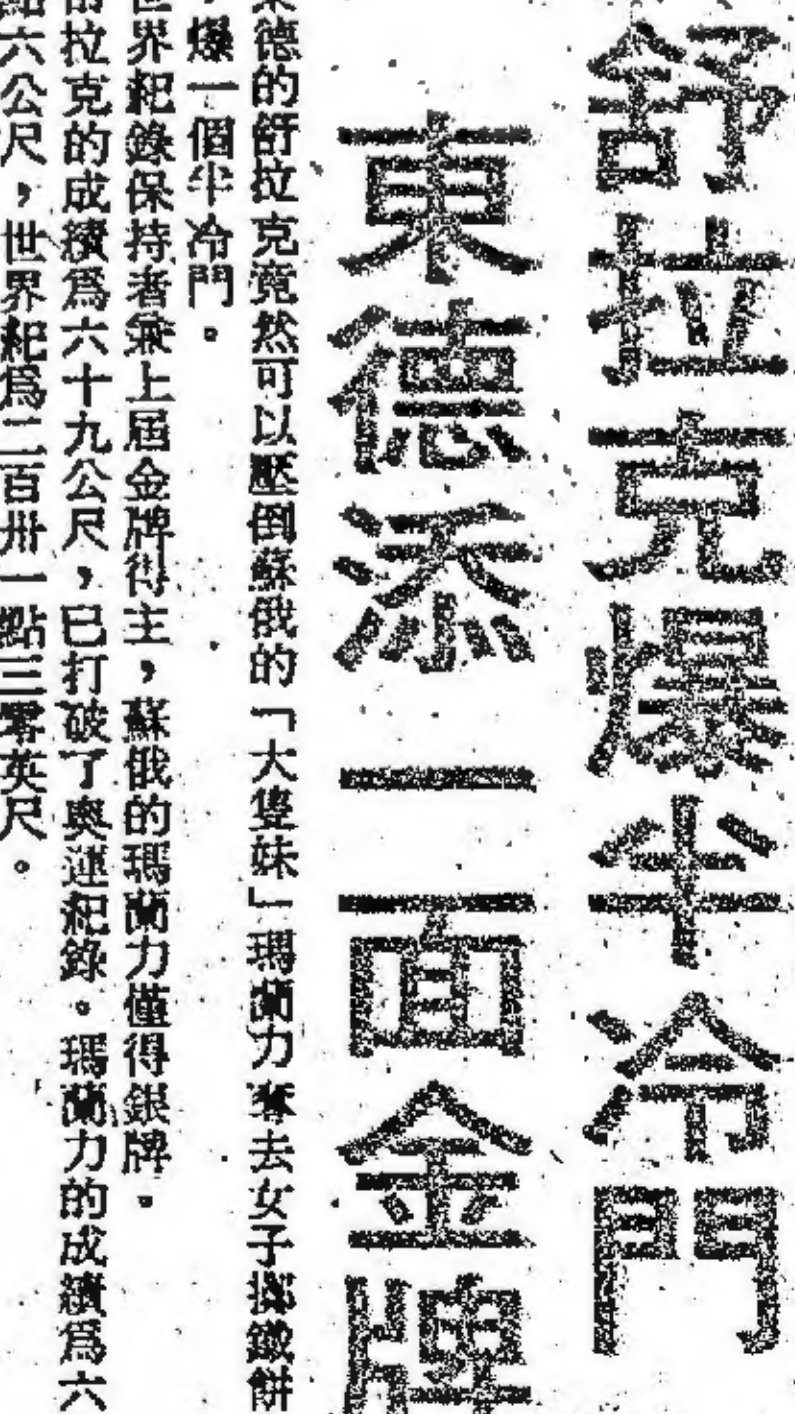 舒拉克爆半冷門
東德添一面金牌
東德的舒拉克竟然可以壓倒蘇俄的「大隻妹」瑪蘭力奪去女子擲鐵餅
，爆一個半冷門。
世界紀錄保持者兼上屆金牌得主，蘇俄的瑪蘭力僅得銀牌。
拉克的成績爲六十九公尺，已打破了奧運紀錄。瑪蘭力的成績爲六
點六公尺，世界紀爲二百卅一點三零英尺。